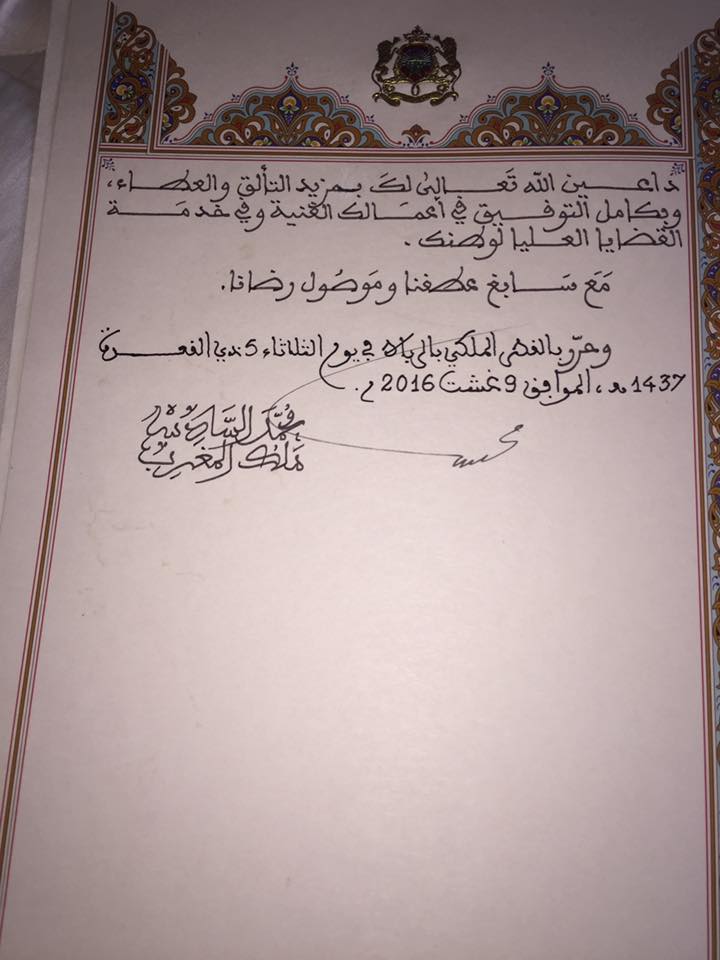 داعين الله تَعَالىٰ لكَ بمزيد التألق والعطاء،
وبكامل التوفيق في أعمَالك الفنية وفي خدمَة
القضايا العليا لوطنك.
مَع سَابغ عطفنا ومَوصُول رضانا.
وحرّر بالقصر الملكي بالرباط في يوم الثلاثاء 5 ذي القعدة
1437 هـ، الموافق 9 غشت 2016 م.
مُحمَّد السَّادِس
مَلك المغرب